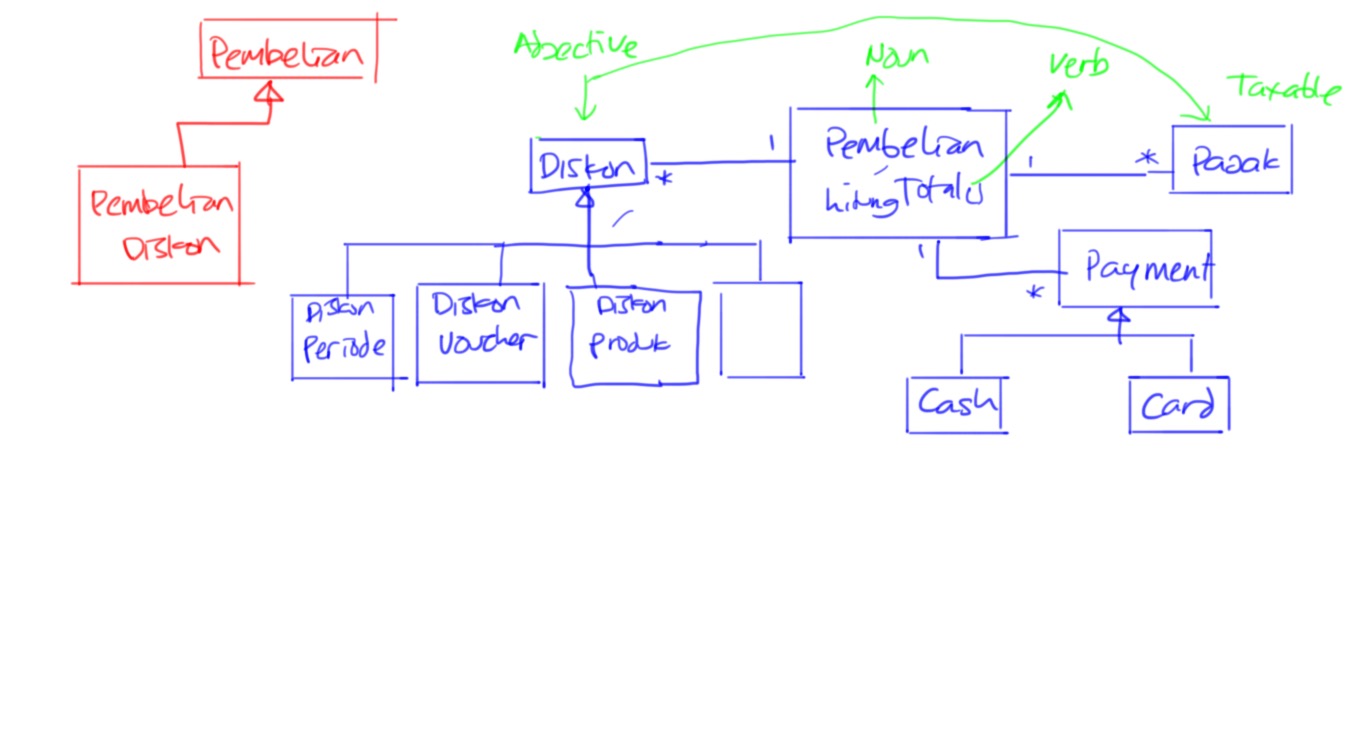 Pembelian
Pembelian
Diskon
Adjective
Noun
Verb
Taxable
Diskon
*
1
Pembelian
hitungTotal()
1
*
Pajak
1
*
Payment
Diskon
Periode
Diskon
Voucher
Diskon
Produk
Cash
Card